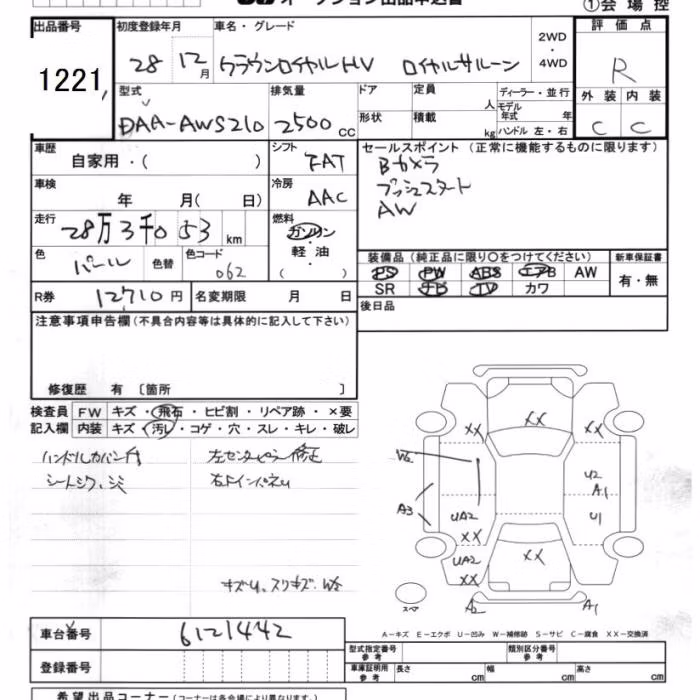 オークション出品申込書
①会場控
出品番号
1221
初度登録年月
28 12月
車名・グレード
クラウンロイヤルHV ロイヤルサルーン
2WD
・
4WD
評価点
R
型式
DAA-AWS210
排気量
2500cc
ドア
形状
定員
人
積載
kg
ディーラー・並行
モデル年式 年
ハンドル 左・右
外装 内装
C C
車歴
自家用・( )
シフト
FAT
セールスポイント (正常に機能するものに限ります)
Bカメラ
プッシュスタート
AW
車検
年 月( 日)
冷房
AAC
走行
28万3千053km
燃料
ガソリン
・
軽油
( )
色
パール
色替
色コード
062
装備品 (純正品に限り○をつけてください)
PS PW ABS エアB AW
SR ナビ TV カワ
新車保証書
有・無
R券 12710円
名変期限 月 日
後日品
注意事項申告欄 (不具合内容等は具体的に記入して下さい)
修復歴 有 〔箇所 〕
検査員
記入欄
FW キズ・飛石・ヒビ割・リペア跡・×要
内装 キズ・汚し・コゲ・穴・スレ・キレ・破レ
ハンドルカバー付
シートシワ、シミ
左センターピラー修正
右ドインパネU
キズU、スリキズ、W2
XX XX XX
W2
U2
A1
A3
UA2
U1
XX
UA2
XX
XX
スペア
A2 A1
A-キズ E-エクボ U-凹み W-補修跡 S-サビ C-腐食 XX-交換済
車台番号 6121442
登録番号
型式指定番号
参考
類別区分番号
参考
車庫証明用
参考
長さ cm 幅 cm 高さ cm
希望出品コーナー (コーナーは各会場により異なります。)